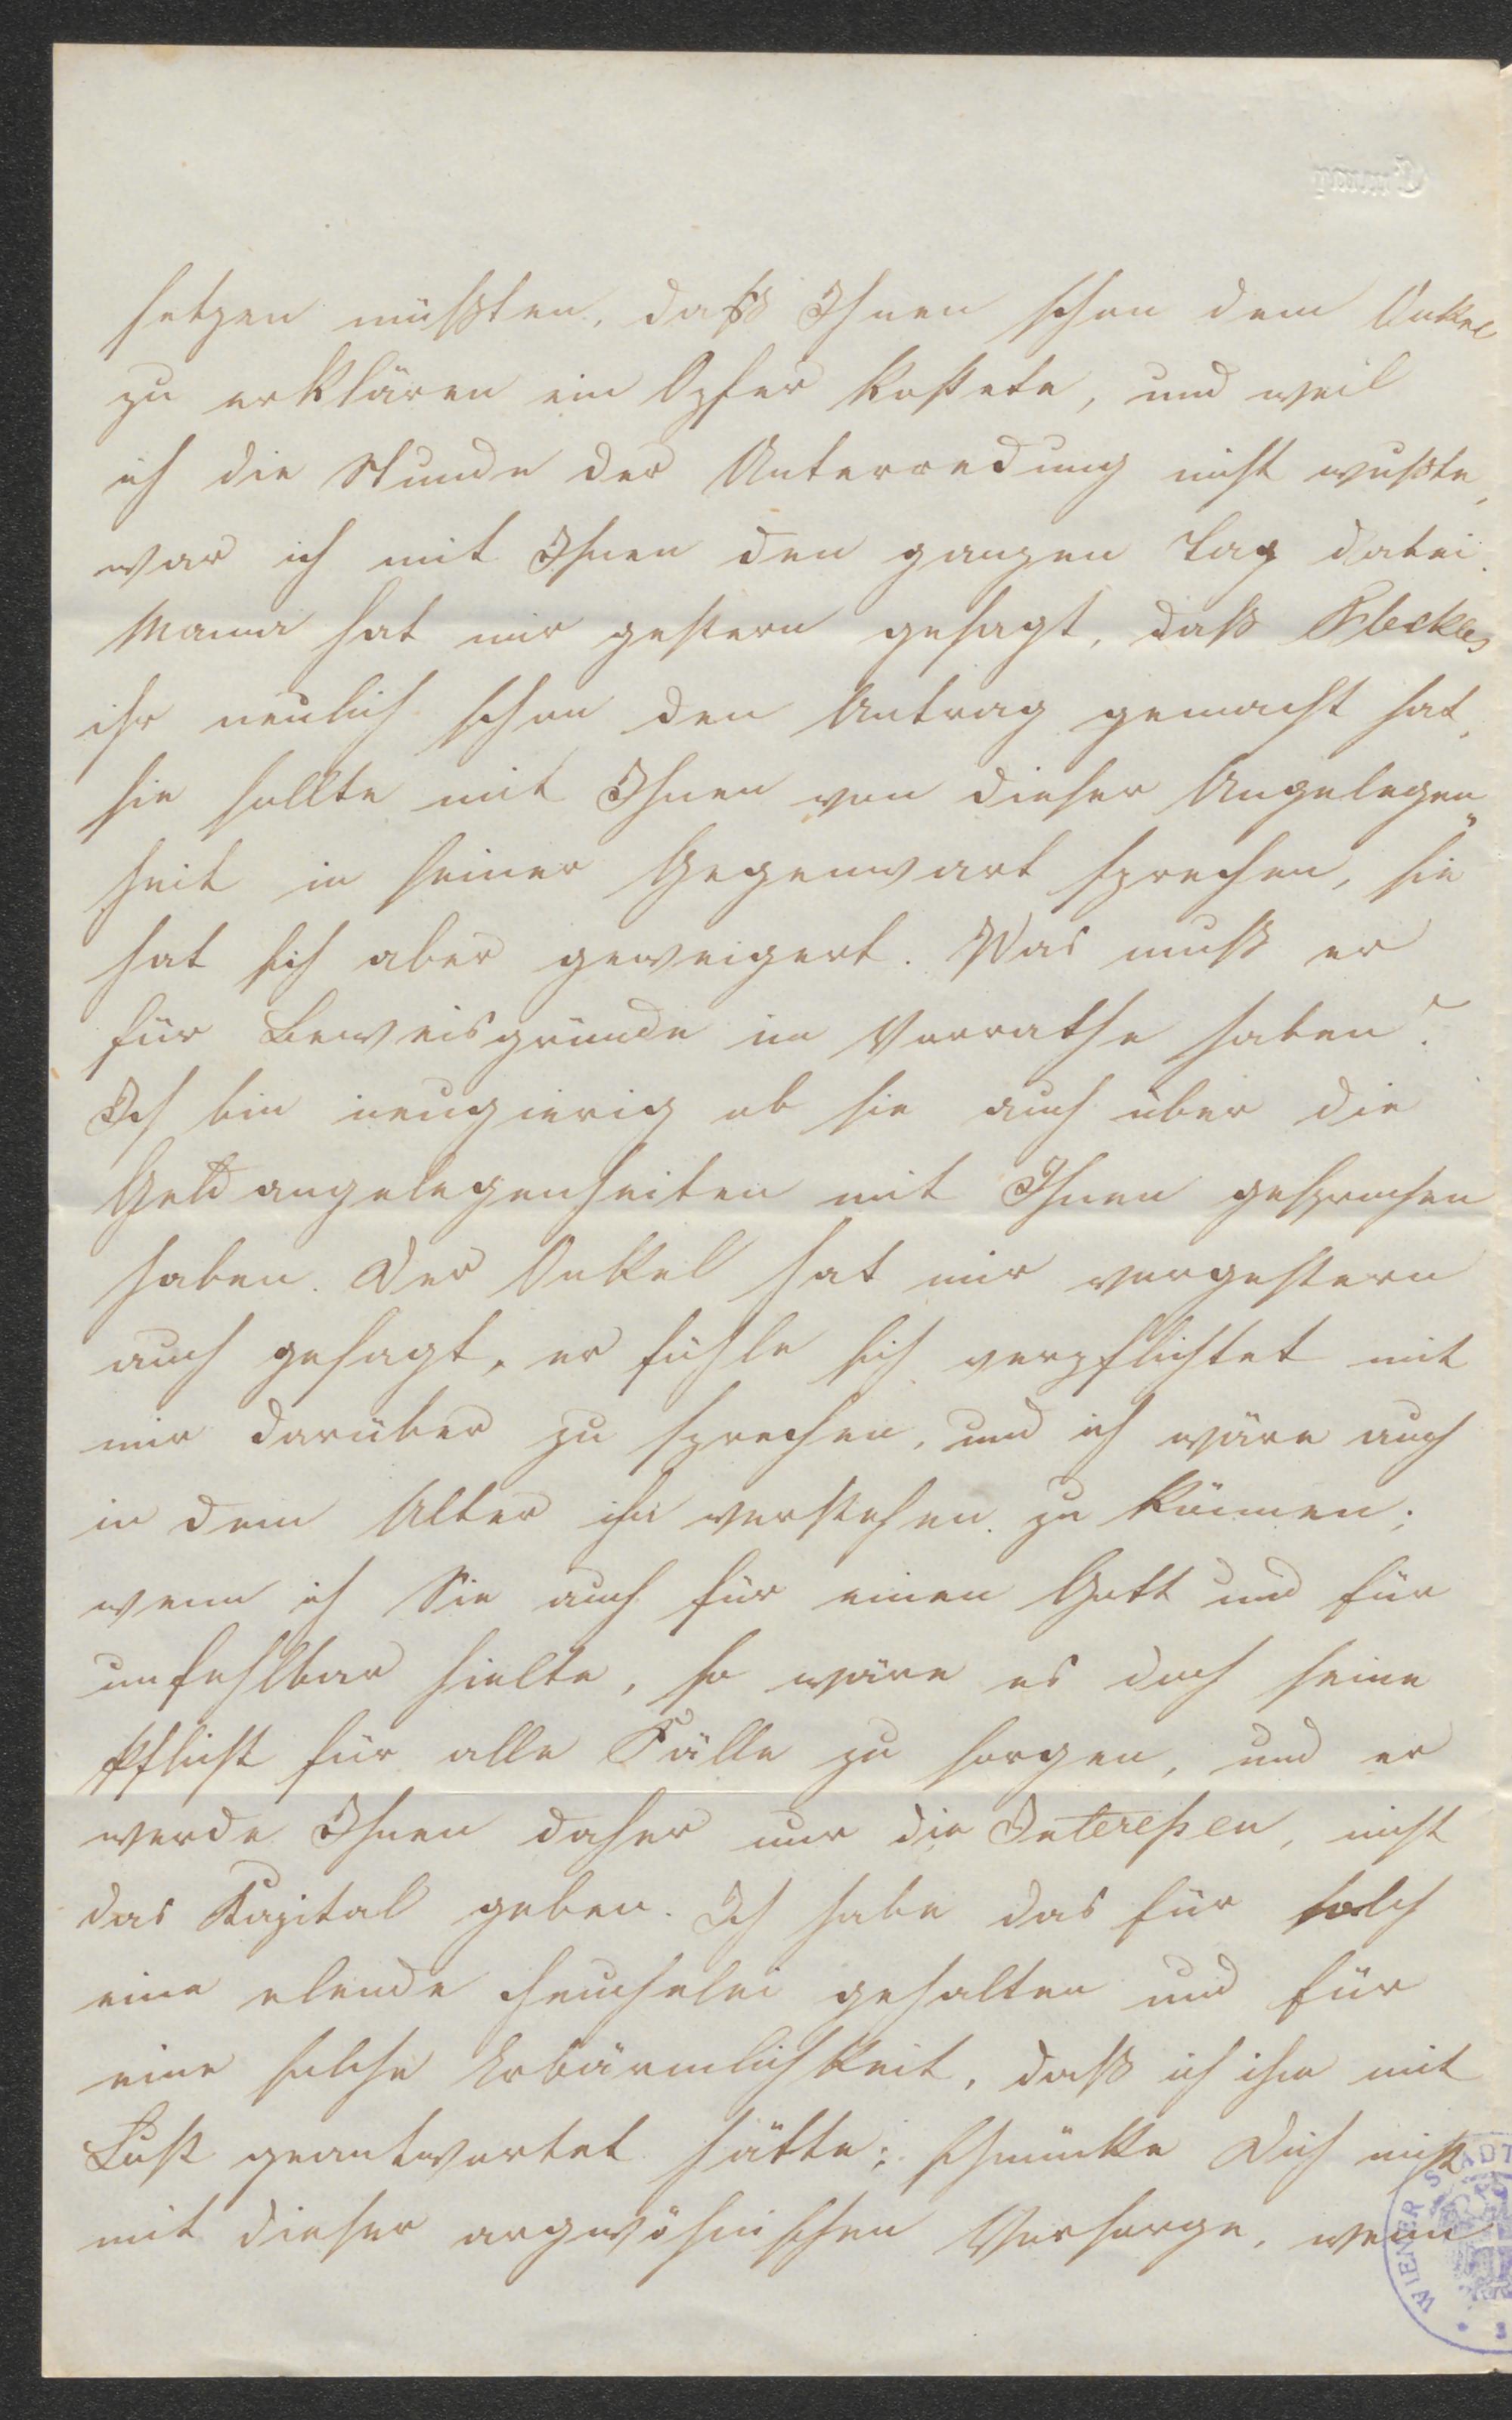 setzen müßten, daß Ihnen schon dem Onkel
zu erklären ein Opfer kostete, und weil
ich die Stunde der Unterredung nicht wußte,
war ich mit Ihnen den ganzen Tag dabei.
Mama hat mir gestern gesagt, daß Fleckles
ihr neulich schon den Antrag gemacht hat,
sie sollte mit Ihnen von dieser Angelegen„
heit in seiner Gegenwart sprechen, sie
hat sich aber geweigert. Was muß er
für Beweisgründe im Vorrathe haben?
Ich bin neugierig ob sie auch über die
Geldangelegenheiten mit Ihnen gesprochen
haben. Der Onkel hat mir vorgestern
auch gesagt, er fühle sich verpflichtet mit
mir darüber zu sprechen, und ich wäre auch
in dem Alter ihn verstehen zu können;
wenn ich Sie auch für einen Gott und für
unfehlbar hielte, so wäre es doch seine
Pflicht für alle Fälle zu sorgen, und er
werde Ihnen daher nur die Intereßen, nicht
das Kapital geben. Ich habe das für solch
eine elende Heuchelei gehalten und für
eine solche Erbärmlichkeit, daß ich ihm mit
Lust geantwortet hätte: schmücke Dich nicht
mit dieser argwöhnischen Vorsorge, wenn
WIENER STADT